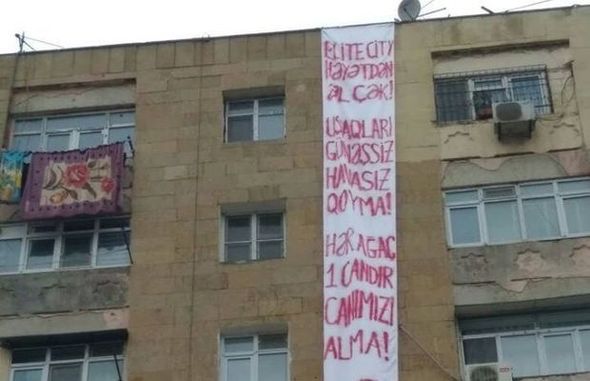 ELİTE CİTY
HƏYƏTDƏN
ƏL ÇƏK!
UŞAQLARI
GÜNƏŞSİZ
HAVASIZ
QOYMA!
HƏR AĞAC
1 CANDIR
CANIMIZI
ALMA!